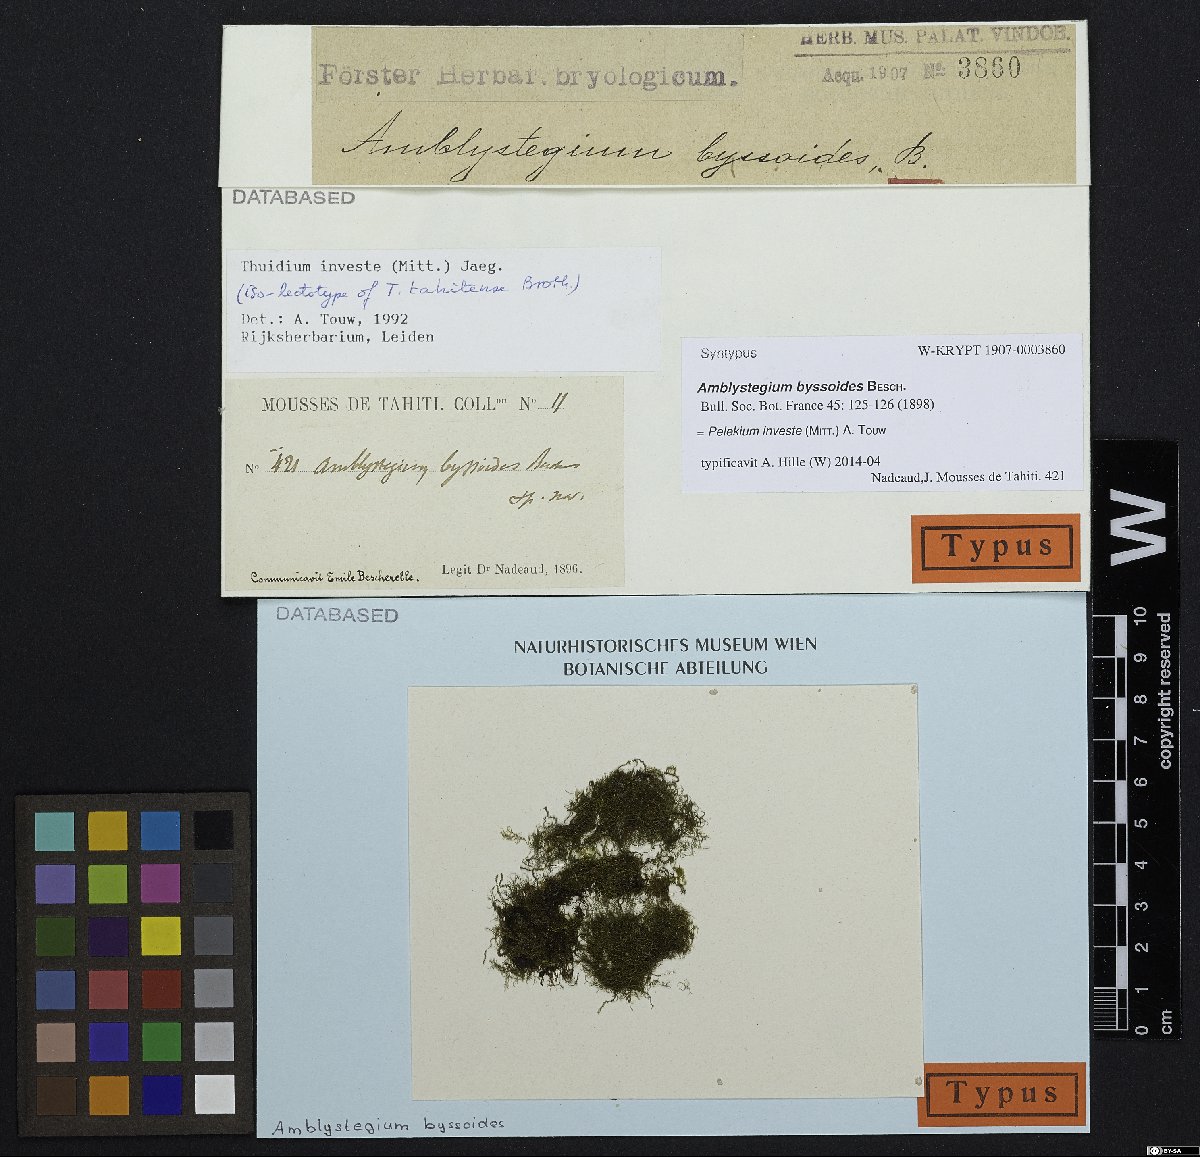 HERB. MUS. PALAT. VINDOB.
Förster Herbar. bryologicum.
Acqu. 1907 No. 3860
Amblystegium byssoides, B.
DATABASED
Thuidium investe (Mitt.) Jaeg.
(iso-lectotype of T. tahitense Broth.)
Det.: A. Touw, 1992
Rijksherbarium, Leiden
Syntypus W-KRYPT 1907-0003860
Amblystegium byssoides BESCH.
Bull. Soc. Bot. France 45: 125-126 (1898)
= Pelekium investe (MITT.) A. TOUW
typificavit A. Hille (W) 2014-04
Nadeaud,J. Mousses de Tahiti. 421
MOUSSES DE TAHITI. COLLon No 11
No 421 Amblystegium byssoides
sp. nov.
Communicavit Emile Bescherelle.
Legit Dr Nadeaud, 1896.
Typus
DATABASED
NATURHISTORISCHES MUSEUM WIEN
BOTANISCHE ABTEILUNG
Typus
Amblystegium byssoides
W
0 1 2 3 4 5 6 7 8 9 10
cm
copyright reserved
CC BY-SA